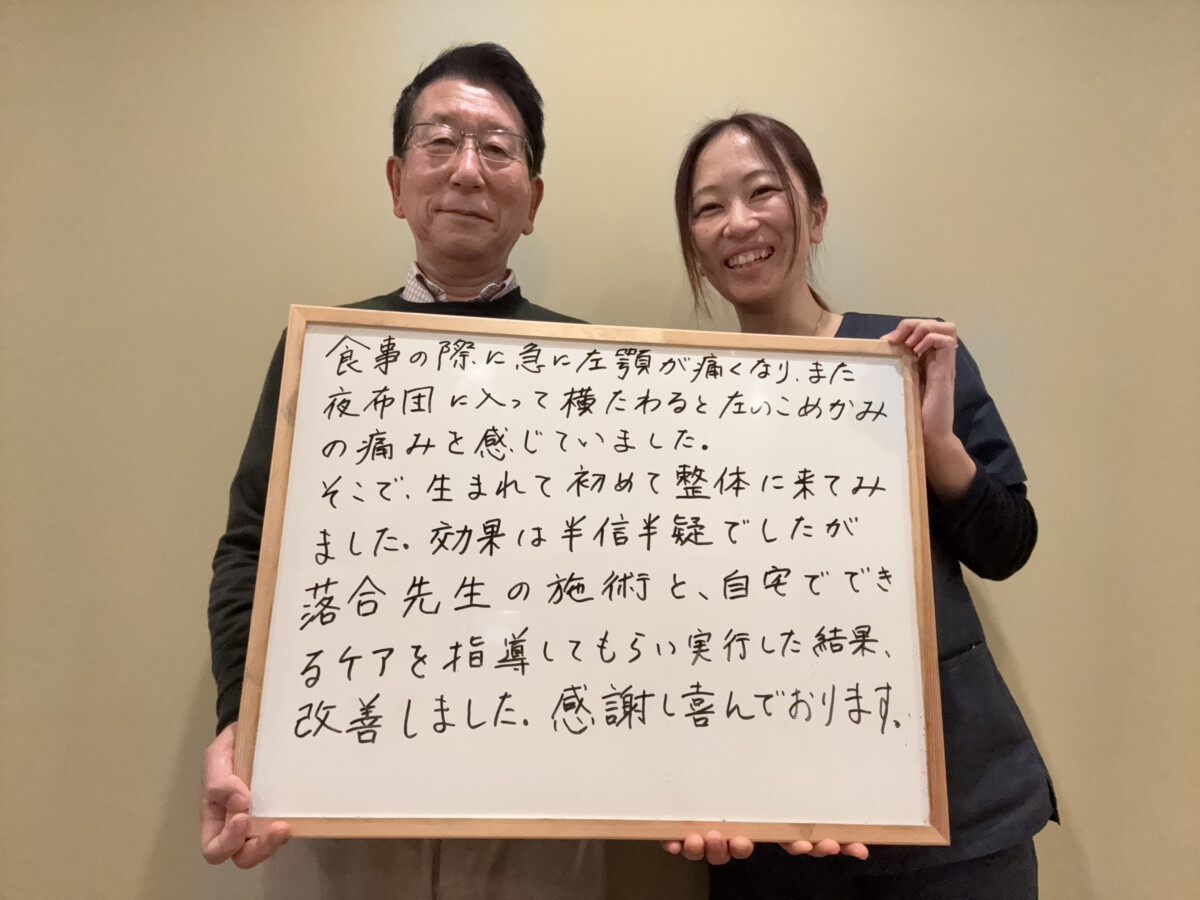 食事の際に急に左顎が痛くなり、また
夜布団に入って横たわると左のこめかみ
の痛みを感じていました。
そこで、生まれて初めて整体に来てみ
ました。効果は半信半疑でしたが
落合先生の施術と、自宅ででき
るケアを指導してもらい実行した結果、
改善しました。感謝し喜んでおります。